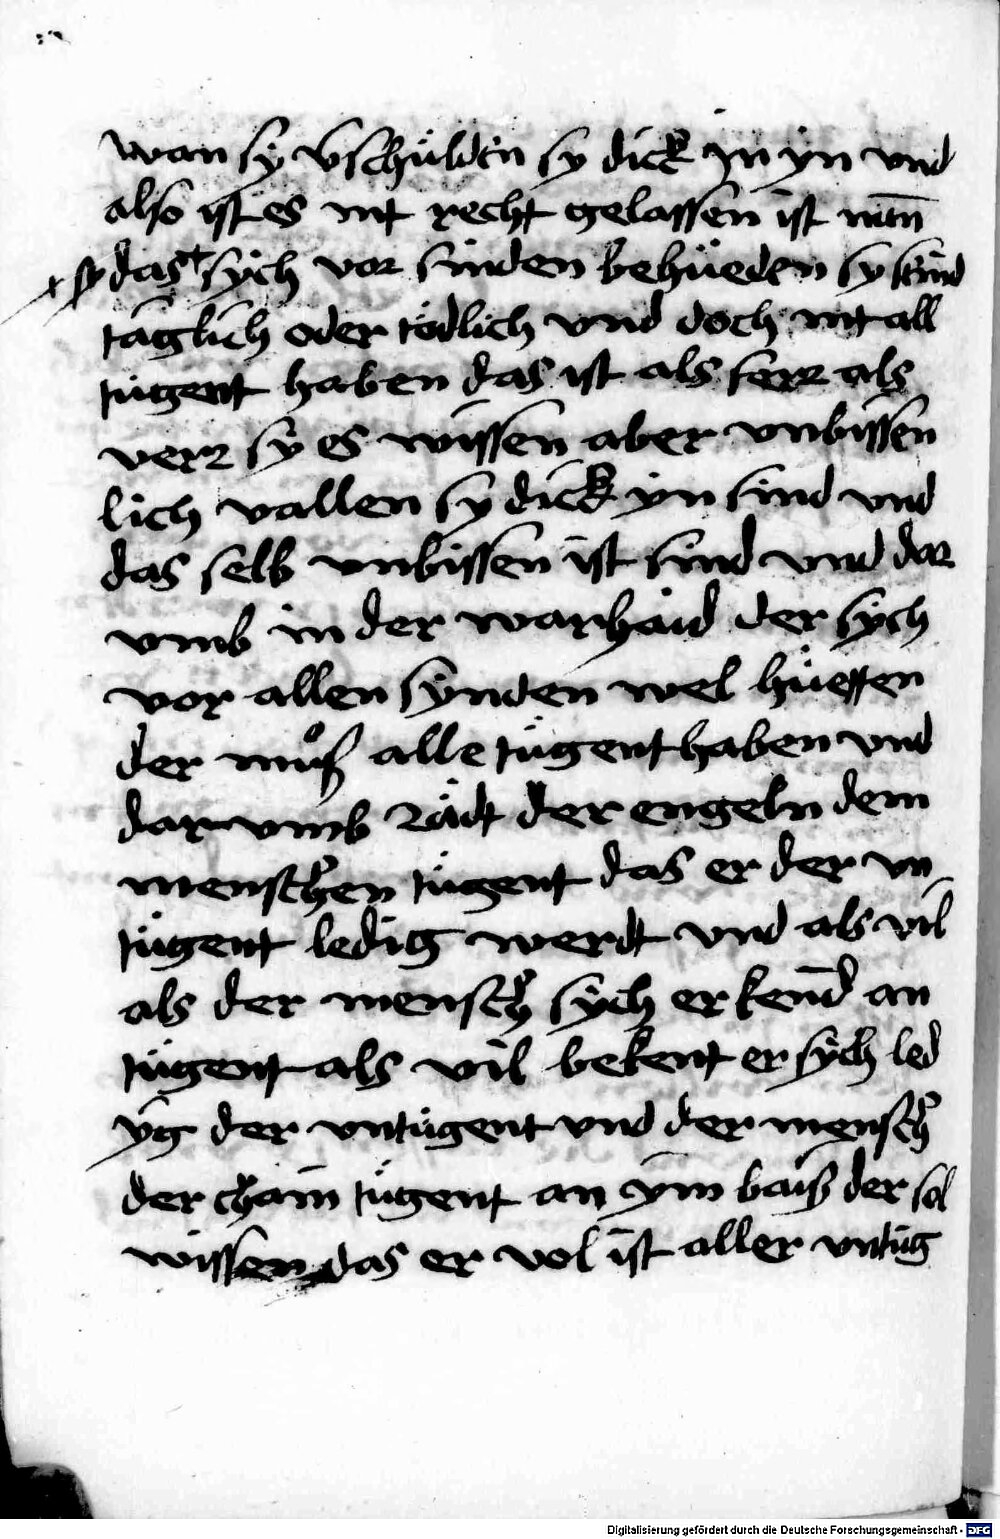 wan sy v̄schüldēn sy dick jn yn vnd
also ist es nit recht gelassen ist
+ sy das + sych vor sinden behüeden sy seind
täglich oder tödlich vnd doch nit all
tugent haben das ist als ferr als
verr sy es wissen aber vnbissen
lich vallen sy dick yn sind vnd
das selb vnbissen ist sind vnd dar
vmb in der warhaid der sych
vor allen synden wel hüetten
der muͦß alle tügent haben vnd
dar vmb rädt der engeln dem
menschen tügent das er der vn
tügent ledig werdt vnd als vil
als der mensch sych erkend an
tügent als vil bekent er sych led
yg der vntügent vnd der mensch
der cham tügent an ym bais der sol
wissen das er vol ist aller vntüg
Digitalisierung gefördert durch die Deutsche Forschungsgemeinschaft - DFG